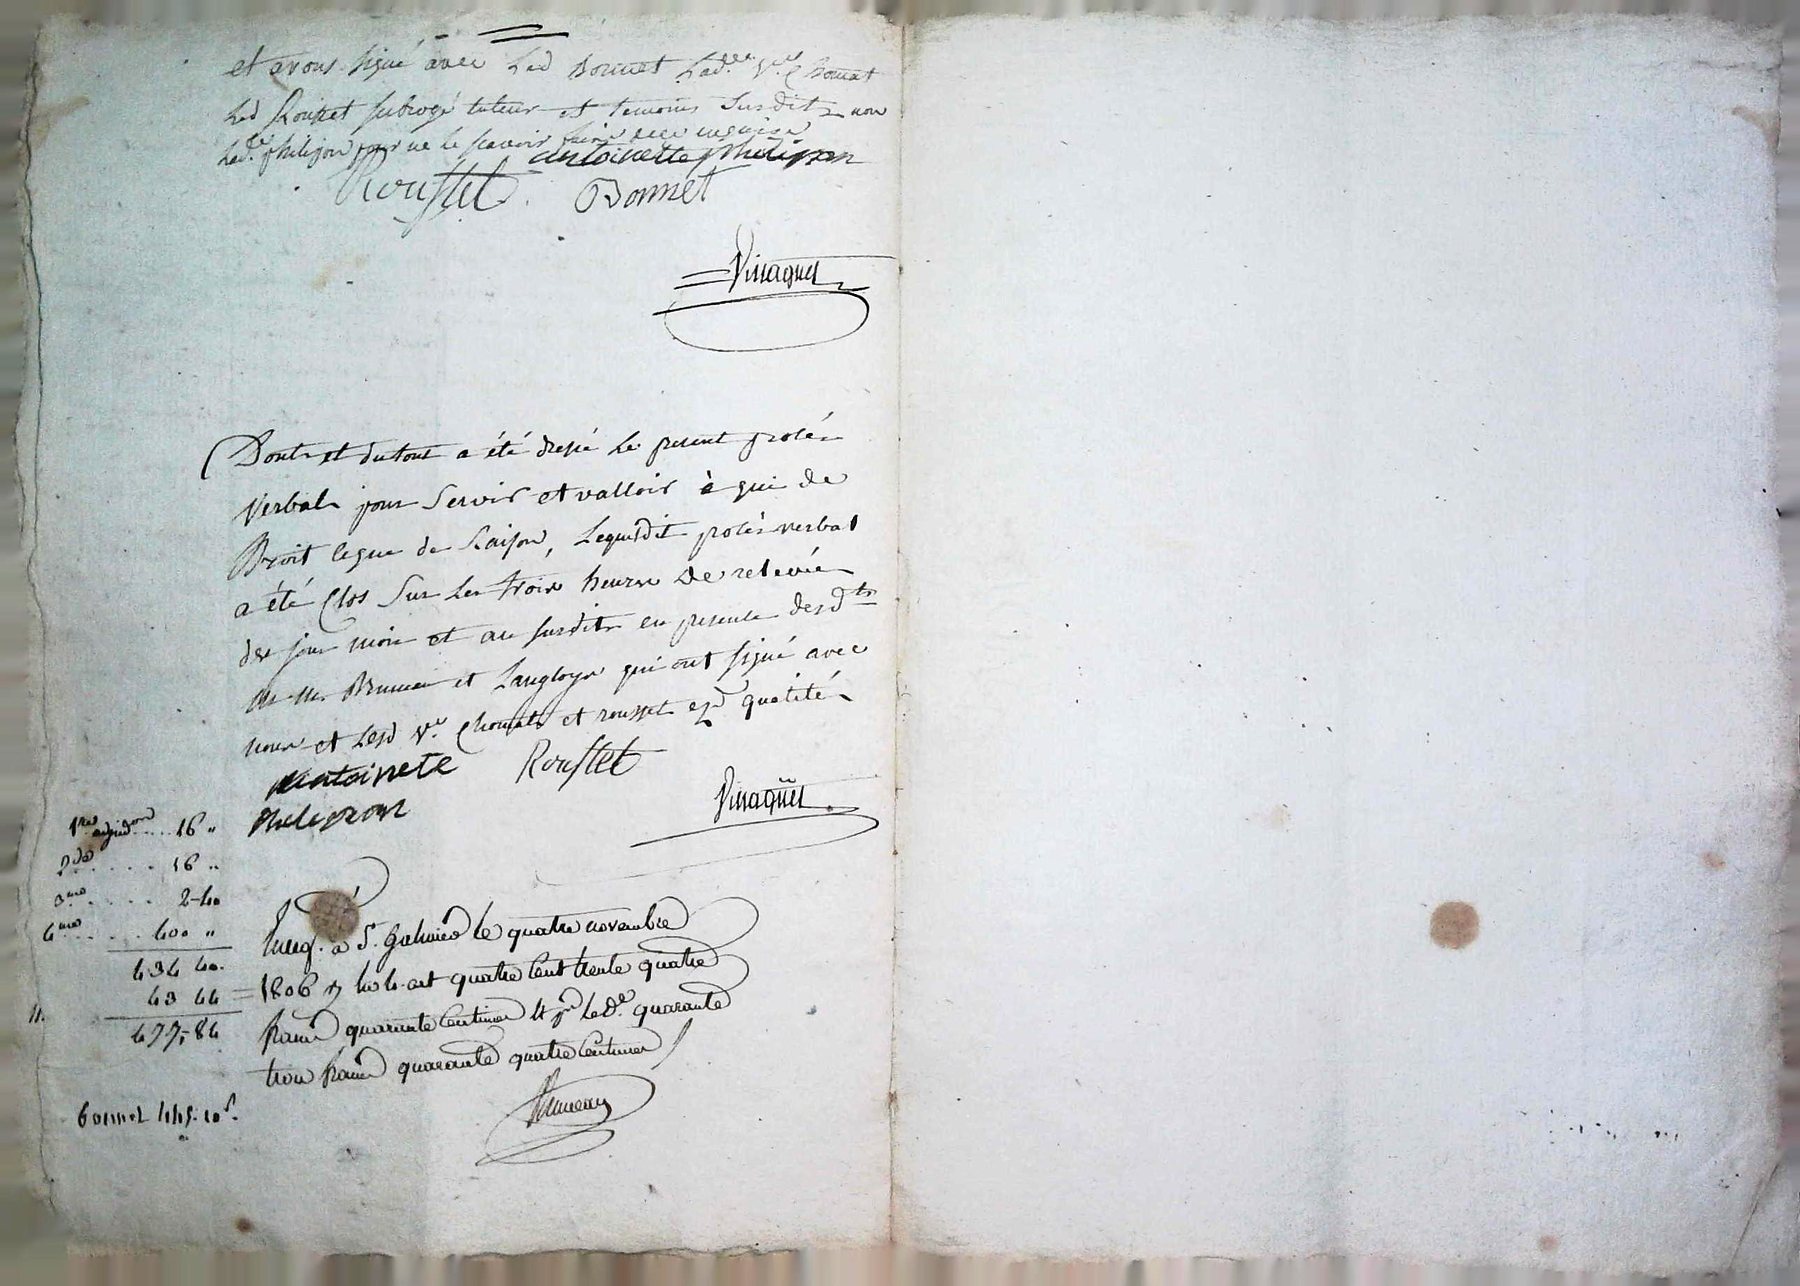 et avons signé avec led Bonnet lad.e v.e Chomat
led Rousset subrogé tuteur et temoins susdits non
lad.e philipon pour ne le scavoir faire de ce enquise
antoinette philipon
Roustet Bonnet
Viraguet
Dont et du tout a été dressé le present procés
verbal pour servir et valloir à qui de
Droit et que de Raison, lequeldit procés verbal
a été Clos sur les trois heures de relevée
des jour mois et an susdits en presence desd.ts
m.rs Bruneau et Langloys qui ont signé avec
nous et lesd v.e Chomat et rousset esd qualités
antoinete Roustet
Phelepon Viraguet
1re adjud.on ... 16 "
2de ...... 16 "
3me ..... 2-40
4me ..... 400 "
434 40.
43 44
477,-84
Enreg. à S.t Galmier le quatre novembre
1806 reçu quatre cent trente quatre
francs quarante centimes et pr led.e quarante
trois francs quarante quatre centimes
Bruneau
bonnet 445. 10s.